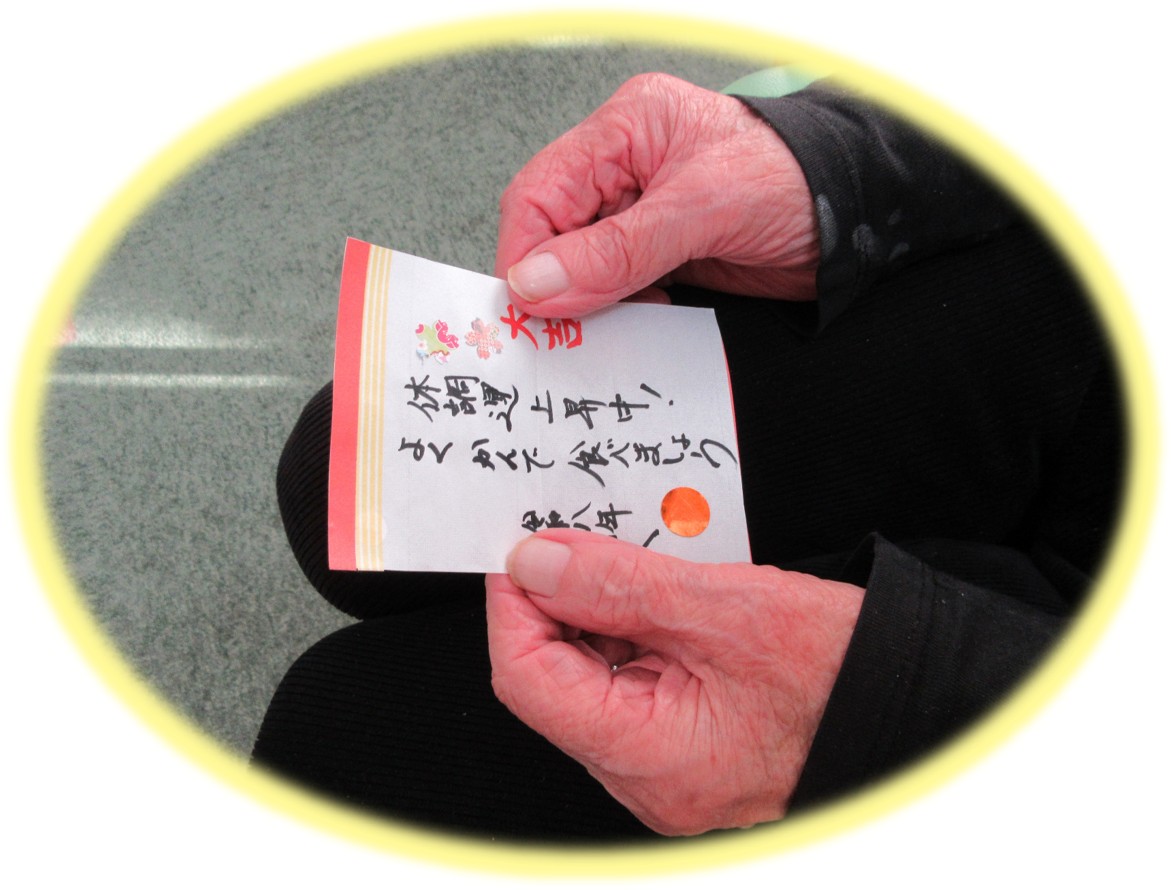 大吉
休調運上昇中!
よくかんで食べましょう
八年